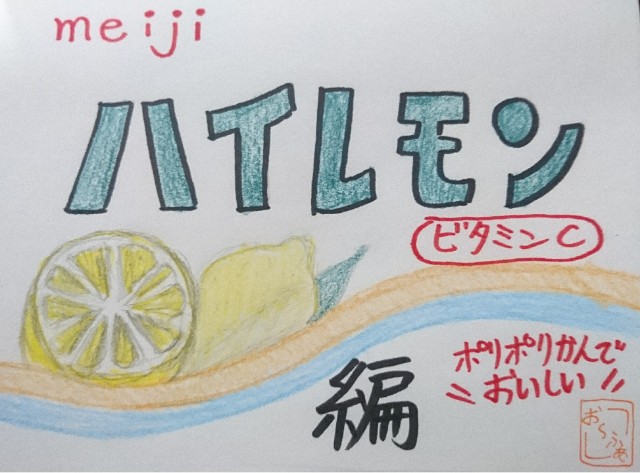 meiji
ハイレモン
ビタミンC
ポリポリかんで
おいしい
編